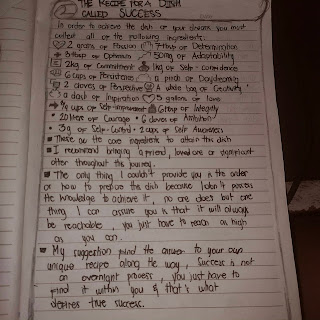 THE RECIPE FOR A DISH
CALLED SUCCESS
In order to achieve the dish of your dreams you must
collect all of the following ingredients:
2 grams of Passion 7 tbsp of Determination
3 tbsp of Optimism 50mg of Adaptability
2kg of Commitment 1kg of Self-confidence
6 cups of Persistence a pinch of Daydreaming
2 cloves of Perspective A whole bag of Creativity
a dash of Inspiration 5 gallons of love
¾ cups of Self-improvement 6 tbsp of Integrity
20 liters of Courage 6 cloves of Ambition
3g of Self-Control 2 cups of Self Awareness
These are the core ingredients to attain this dish
I recommend bringing a friend, loved one or significant
other throughout this journey.
The only thing I couldn't provide you is the order
or how to prepare the dish because I don't possess
the knowledge to achieve it, no one does but one
thing I can assure you is that it will always
be reachable, you just have to reach as high
as you can.
My suggestion find the answer to your own
unique recipe along the way, Success is not
an overnight process, you just have to
find it within you & that's what
desires true success.